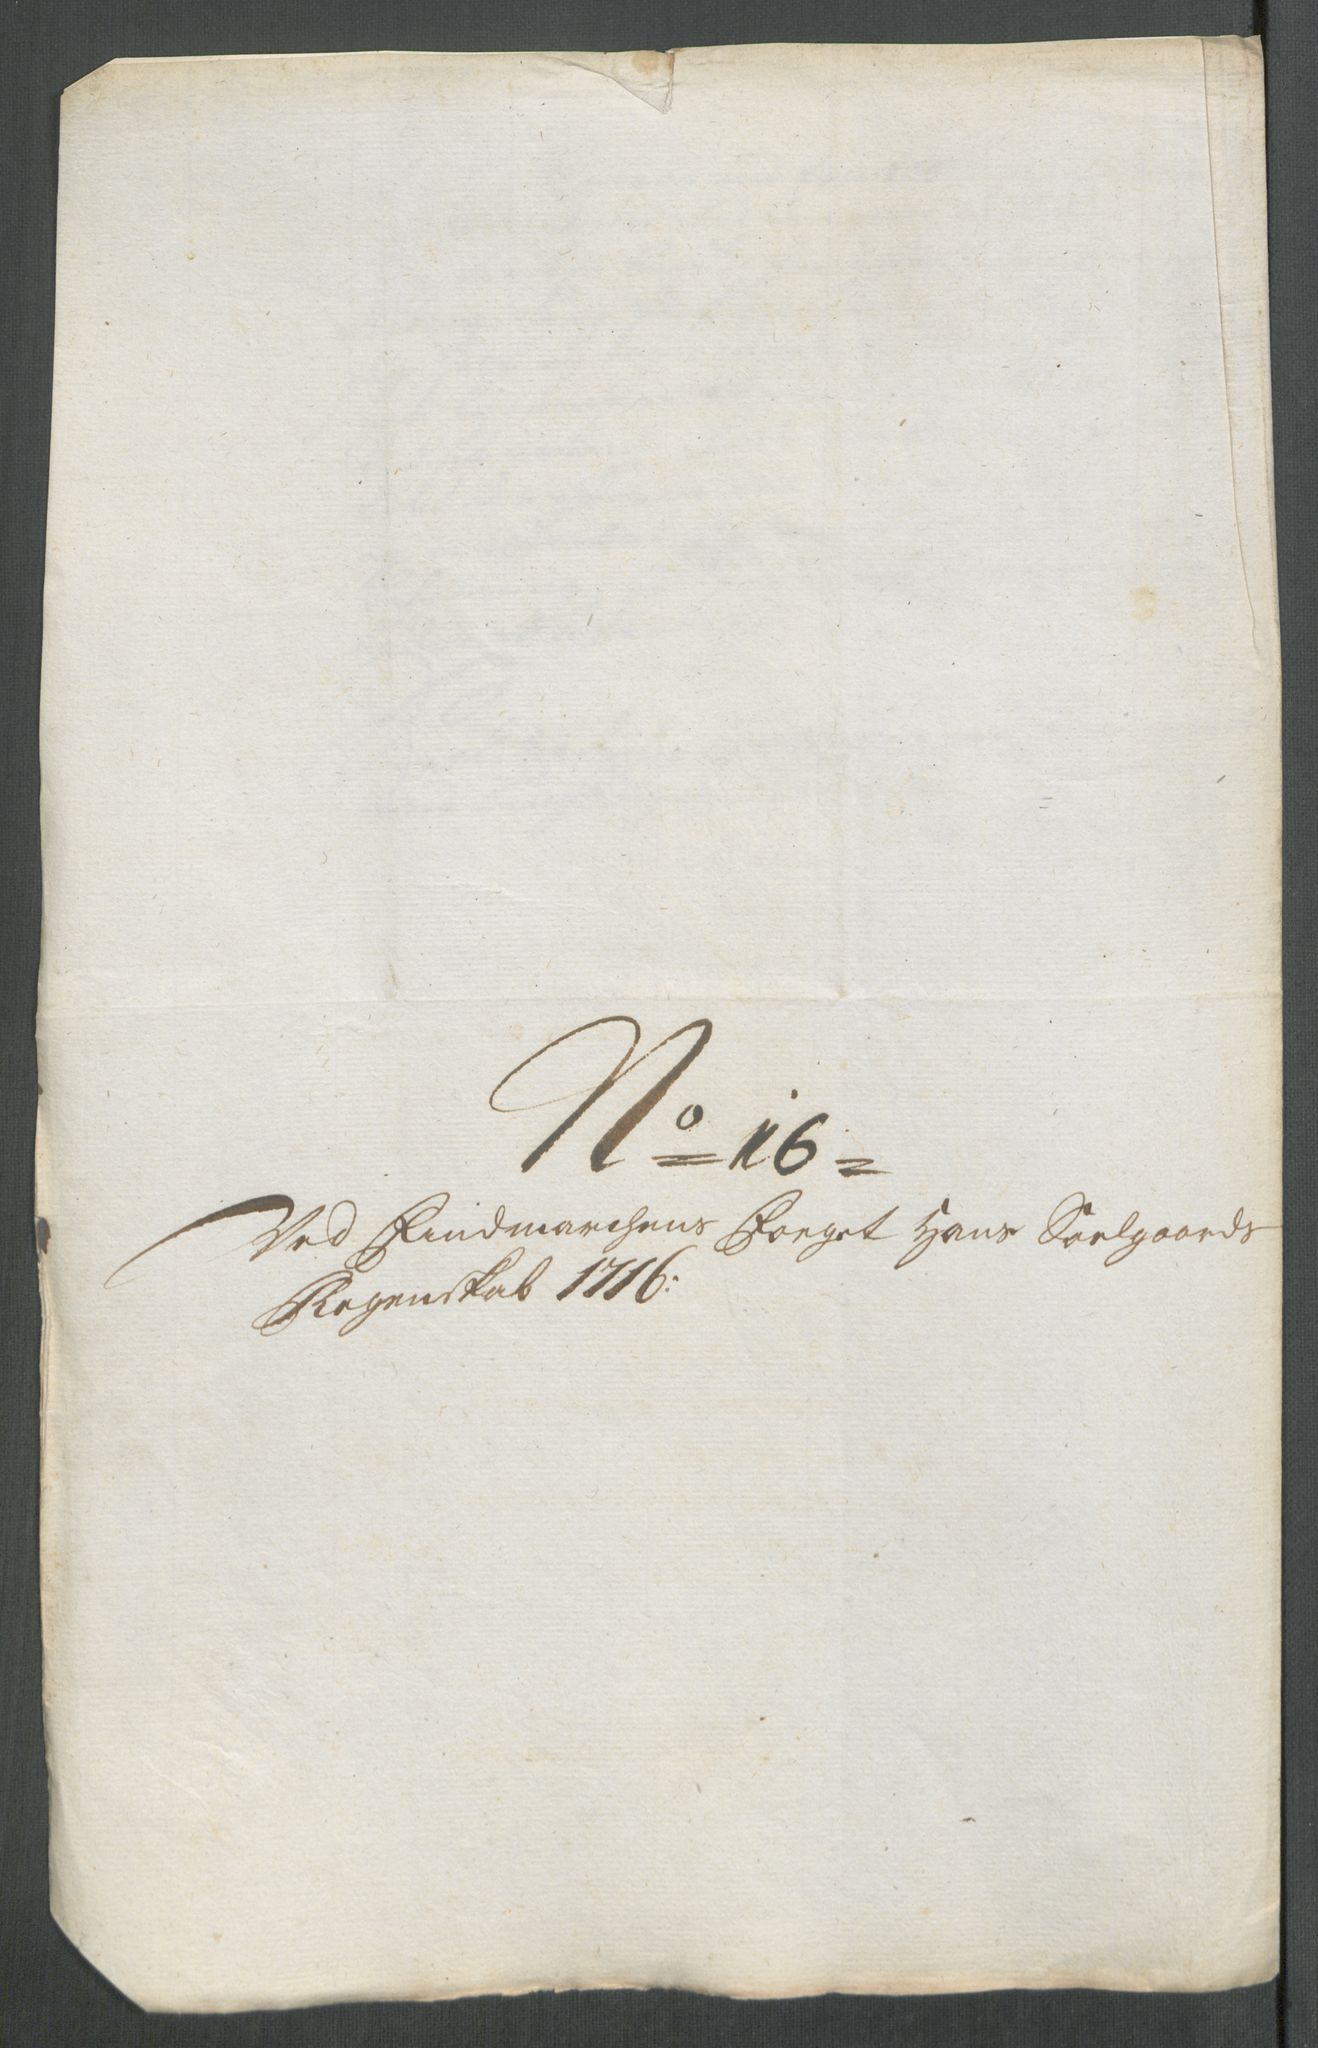 No 16
Ved Findmarchens Foeget Hans Soelgaards
Regenskab 1716: